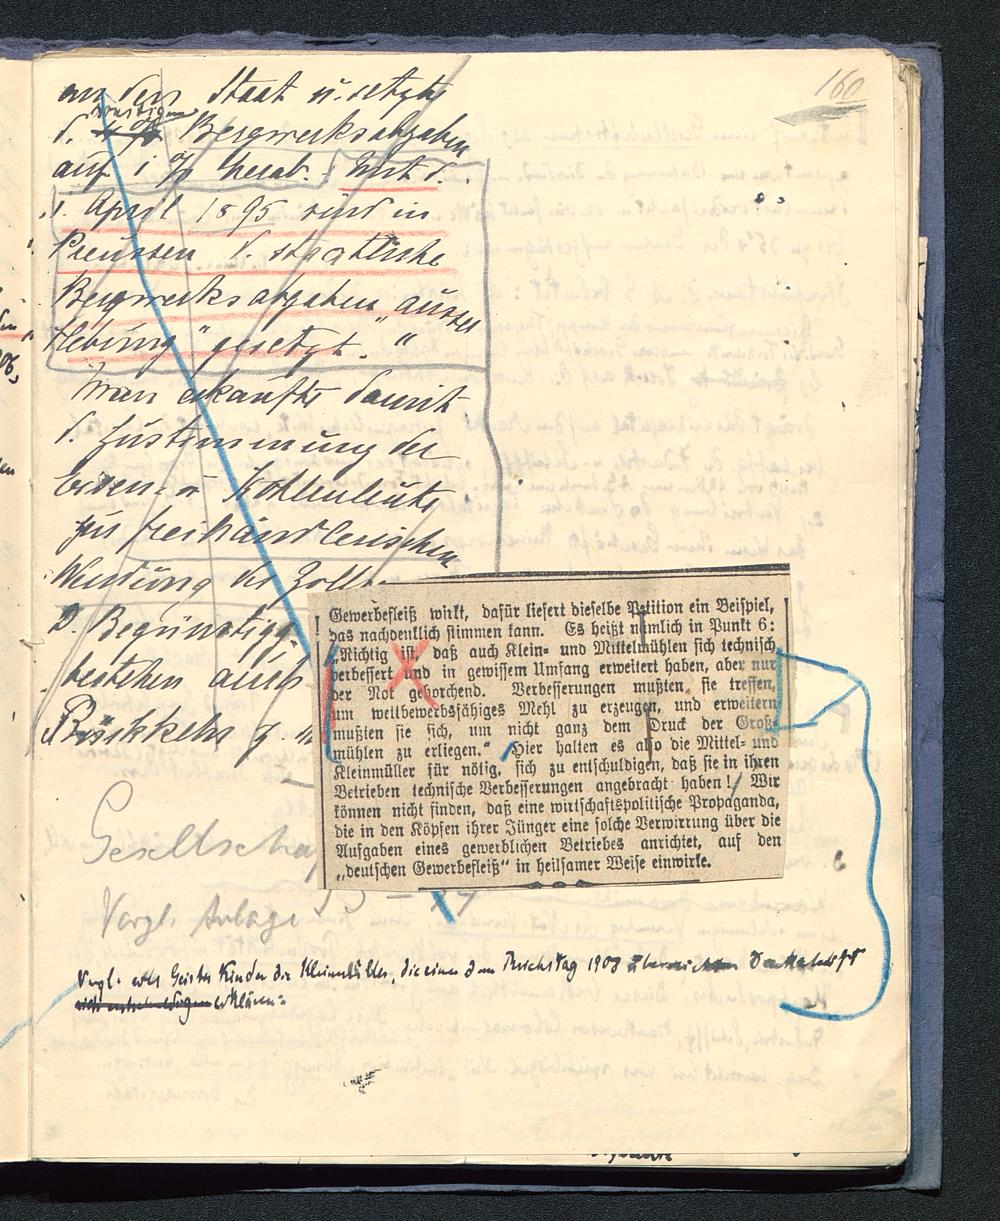 160
an den Staat u. setzte
d. sonstigen Bergwerksabgaben
auf 1 % herab. Mit d.
1. April 1895 sind in
Preussen d. staatliche
Bergwerksabgaben „ausser
Hebung" gesetzt.
Man erkaufte damit
d. Zustimmung der
Eisen- u Kohlenleute
zur freihändlerischen
Wendung der Zoll-
D. Begünstigg
bestehen auch
Rückkehr z
Gewerbefleiß wirkt, dafür liefert dieselbe Petition ein Beispiel,
das nachdenklich stimmen kann. Es heißt nämlich in Punkt 6:
„Richtig ist, daß auch Klein- und Mittelmühlen sich technisch
verbessert und in gewissem Umfang erweitert haben, aber nur
der Not gehorchend. Verbesserungen mußten sie treffen,
um wettbewerbsfähiges Mehl zu erzeugen, und erweitern
mußten sie sich, um nicht ganz dem Druck der Groß-
mühlen zu erliegen.“ Hier halten es also die Mittel- und
Kleinmüller für nötig, sich zu entschuldigen, daß sie in ihren
Betrieben technische Verbesserungen angebracht haben! Wir
können nicht finden, daß eine wirtschaftspolitische Propaganda,
die in den Köpfen ihrer Jünger eine solche Verwirrung über die
Aufgaben eines gewerblichen Betriebes anrichtet, auf den
„deutschen Gewerbefleiß“ in heilsamer Weise einwirke.
Gesellscha
Vergl. Anlage
Vergl. wes Geistes Kinder die Kleinmüller, die einer dem Reichstag 1909
erklären: